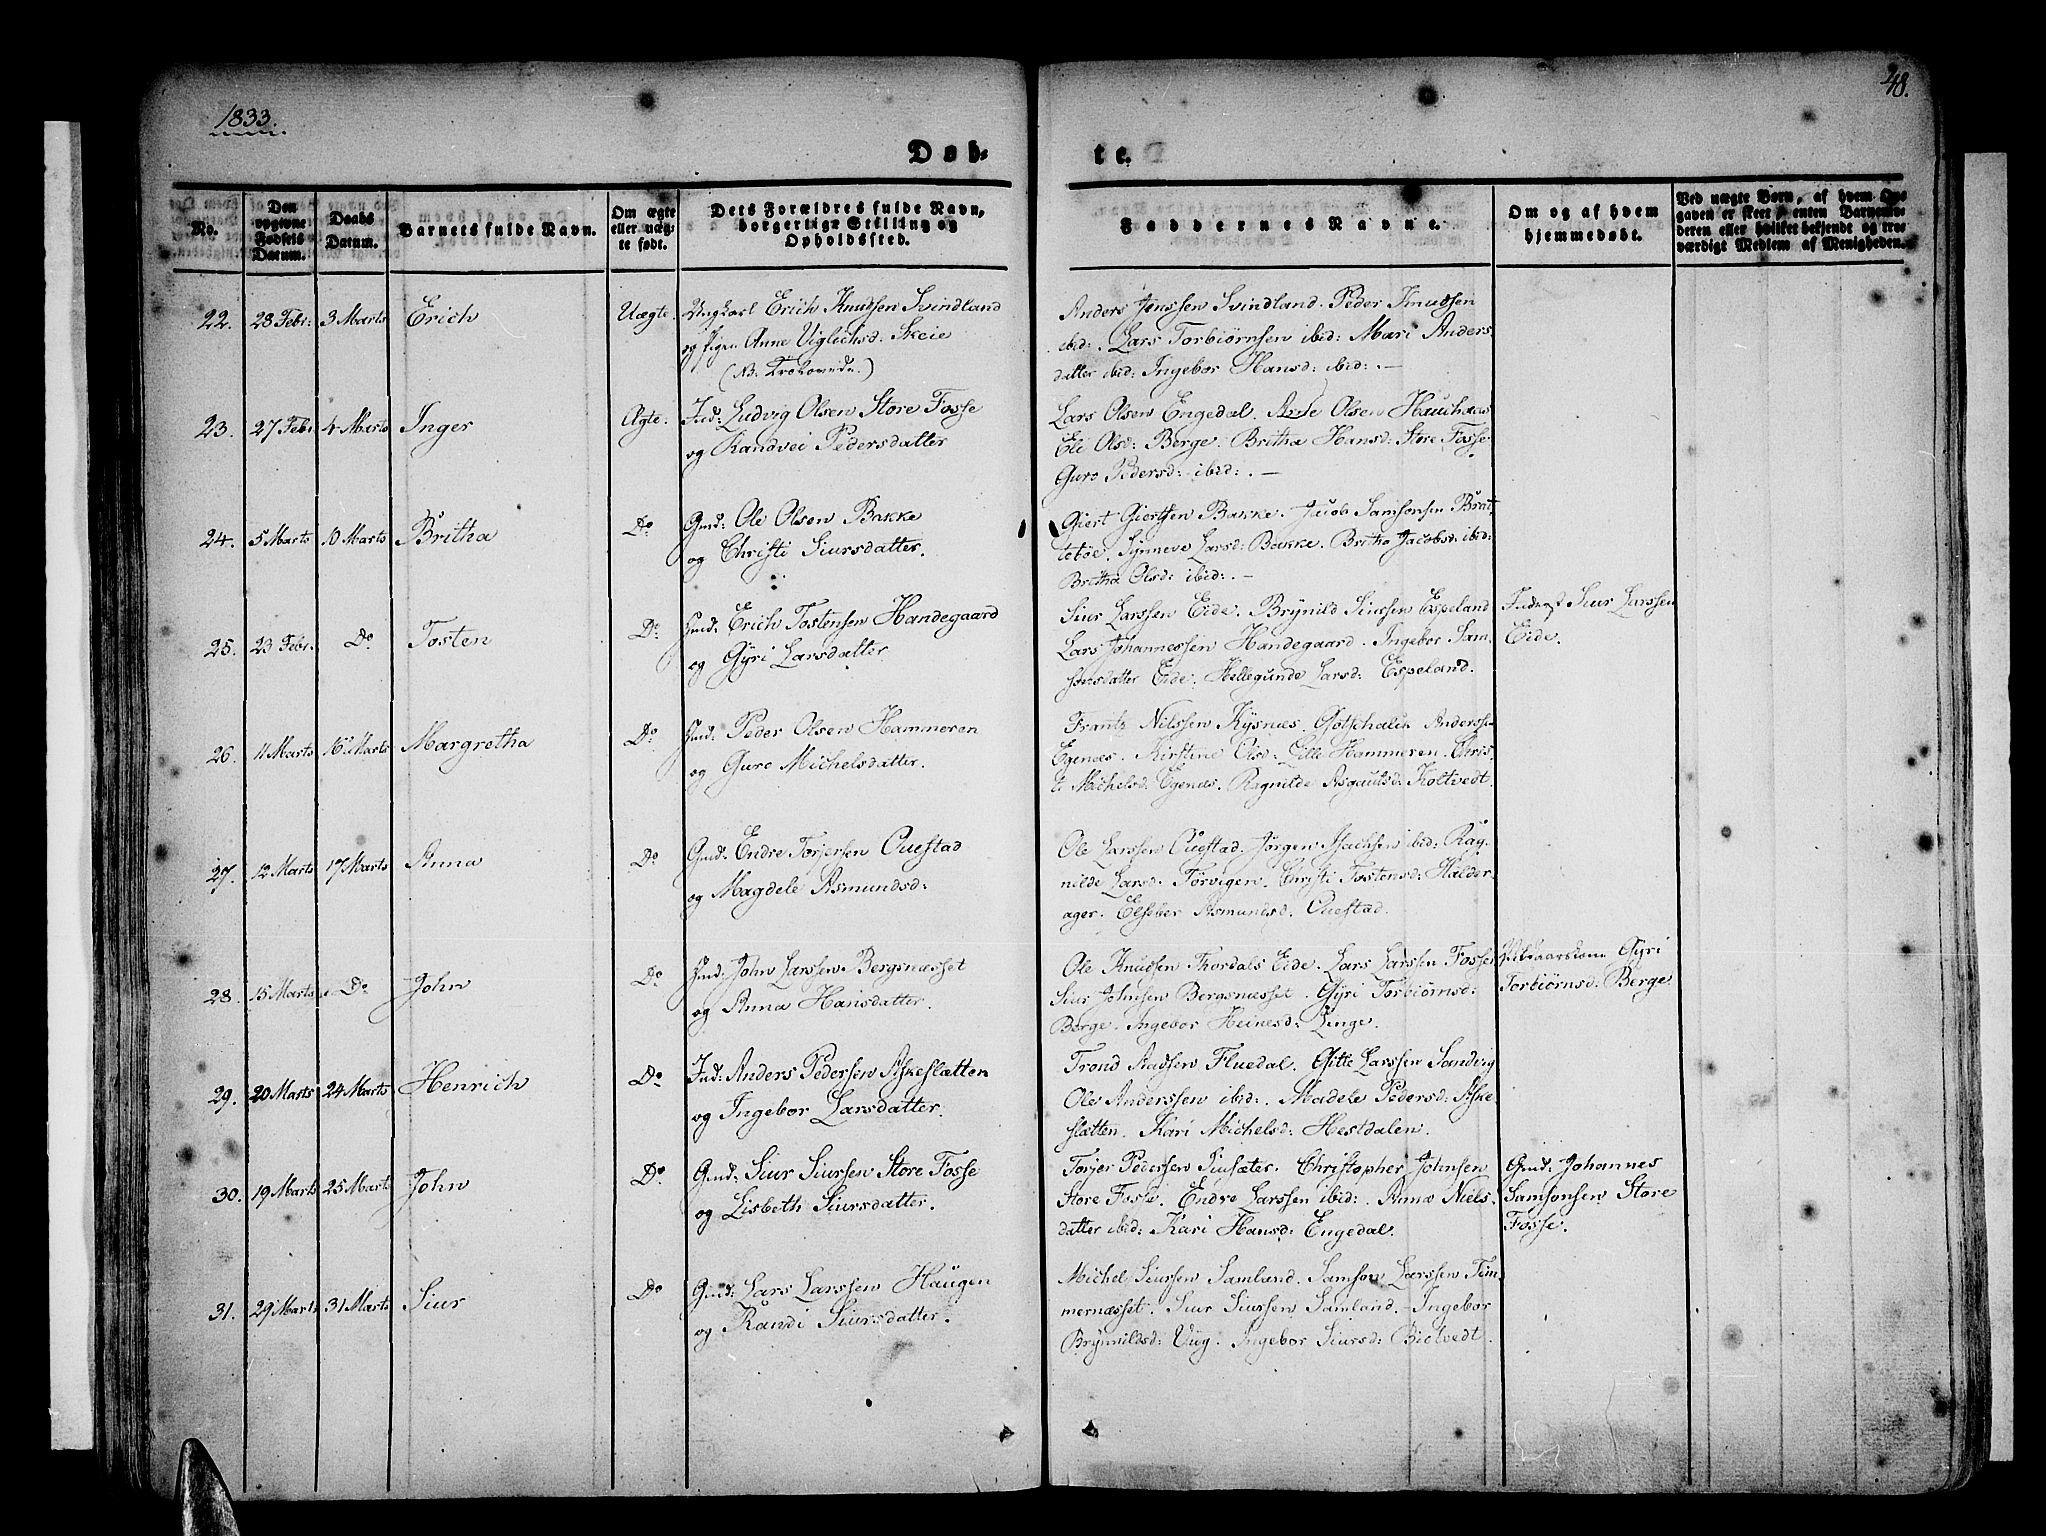 48.
1833.
Døb-
te.
No.
Den opgivne Fødsels Datum.
Daabs Datum.
Barnets fulde Navn.
Om ægte eller uægte født.
Dets Forældres fulde Navn, borgerlige Stilling og Opholdssted.
Faddernes Navne.
Om og af hvem hjemmedøbt.
Ved uægte Børn, af hvem Opgaven er skeet, enten Barnemoderen eller hvilket bekjendt og troværdigt Medlem af Menigheden.
22. 28 Febr: 3 Marts Erich Uægte. Ungkarl Erich Knudsen Svindland
og Pigen Anne Viglichsd: Skeie
Anders Jenssen Svindland. Peder Knudsen
ibid:. Lars Torbiørnsen ibid: Mari Anders
datter ibid: Ingebor Hansd: ibid:.—
23. 27 Febr. 4 Marts Inger Ægte. Ind: Ludvig Olsen Store Fosse
og Randvei Pedersdatter
Lars Olsen Engedal. Arne Olsen Hauchaas
Eli Olsd: Berge. Britha Hansd: Store Fosse
Guro Pedersd: ibid:.—
24. 5 Marts 10 Marts Britha Do Gmd: Ole Olsen Bakke
og Christi Siursdatter.
Giert Giertsen Bakke. Jacob Samsonsen Brat
tetøe. Synneve Larsd: Bakke. Britha Jacobsd: ibid:
Britha Olsd: ibid:.—
25. 23 Febr. Do Tosten Do Hmd: Erich Tostensen Handegaard
og Gÿri Larsdatter.
Siur Larssen Eide. Brÿnild Siursen Espeland
Lars Johannessen Handegaard. Ingebor Sam-
sonsdatter Eide. Hellegunde Larsd: Espeland.
Siur Larssen
Eide.
26. 11 Marts 16 Marts Margretha Do Hmd: Peder Olsen Hammeren
og Guro Michelsdatter.
Frantz Nilssen Kÿsnæs. Gotschalk Anderss-
Egenæs. Kirstine Olsd: Lille Hammeren. Chris
ti Michelsd: Egenæs. Ragnilde Asgautsd: Koltvedt.
27. 12 Marts 17 Marts Anna Do Gmd: Endre Torjersen Ouestad
og Magdele Asmundsd:
Ole Larssen Ouestad. Jörgen Isachsen ibid: Rag-
nilde Larsd. Törvigen. Christi Tostensd: Halder-
ager. Elseber Asmundsd. Ouestad.
28. 15 Marts. Do John Do Hmd: John Larssen Bergsnæsset
og Anna Hansdatter.
Ole Knudsen Thordals Eide. Lars Larssen Fosse
Siur Johnsen Bergsnæsset. Gÿri Torbiørnsd:
Berge. Ingebor Heinesd: Linge.
Gÿri
Torbiørnsd: Berge
29. 20 Marts 24 Marts Henrich Do Ind: Anders Pedersen Askeslætten
og Ingebor Larsdatter.
Trond Aadsen Fluedal. Gitte Larssen Sandvig
Ole Anderssen ibid:. Madele Pedersd: Aske
slætten. Kari Michelsd: Hestdalen.
30. 19 Marts 25 Marts John Do Gmd: Siur Siursen Store Fosse
og Lisbeth Siursdatter.
Torjer Pedersen Siusæter. Christopher Johnsen
Store Fosse. Endre Larssen ibid:. Anna Niels-
datter ibid: Kari Hansd: Engedal.
Gmd: Johannes
Samsonsen Store
Fosse.
31. 29 Marts 31 Marts Siur Do Gmd: Lars Larssen Haugen
og Randi Siursdatter.
Michel Siursen Samland. Samson Larssen Tim-
mernæsset. Siur Siursen Samland. Ingebor
Brÿnnildsd: Viig. Ingebor Siursd: Bietvedt.